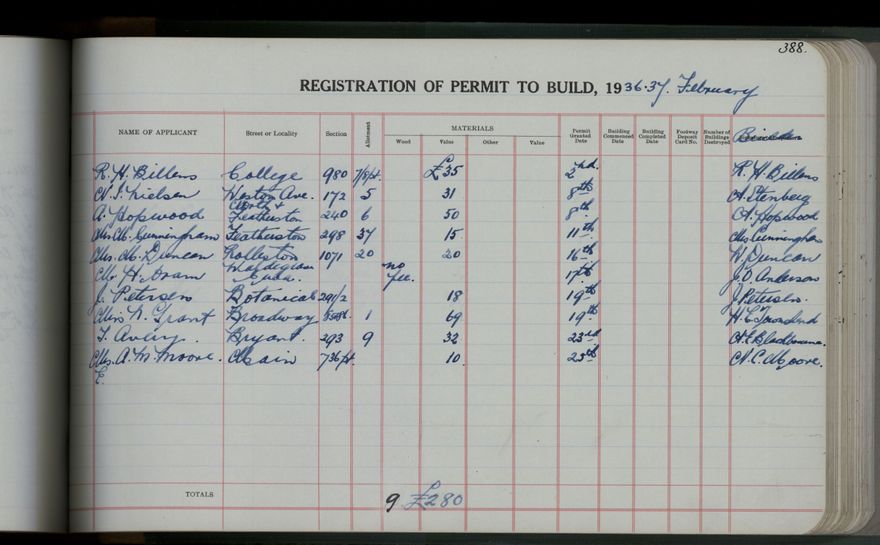 388.
REGISTRATION OF PERMIT TO BUILD, 1936-37. February
NAME OF APPLICANT Street or Locality Section Allotment MATERIALS Wood Value Other Value Permit Granted Date Building Commenced Date Building Completed Date Footway Deposit Card No. Number of Buildings Destroyed
R. H. Billens College 980 7/8/pt. £35 2nd. R. H. Billens
Nielsen Weston Ave. 172 5 31 8th A. Stenberg
North &
A. Hopwood Featherston 240 6 50 8th A. Hopwood
Mrs. M. Cunningham Featherston 298 37 15 11th Mrs Cunningham
Mrs. M. Duncan Rolleston 1071 20 20 16th W. Duncan
Mr H. Oram no fee. 17th J. O. Anderson
J. Petersen Botanical 291/2 18 19th J. Petersen.
Miss N. Grant Broadway 1 69 19th H. E. Townshend
T. Avery. Bryant. 293 9 32 23rd A. E. Blackbourne.
Mrs. A. M. Moore. Main 736/pt. 10. 25th N. C. Moore.
E.
TOTALS 9 £280